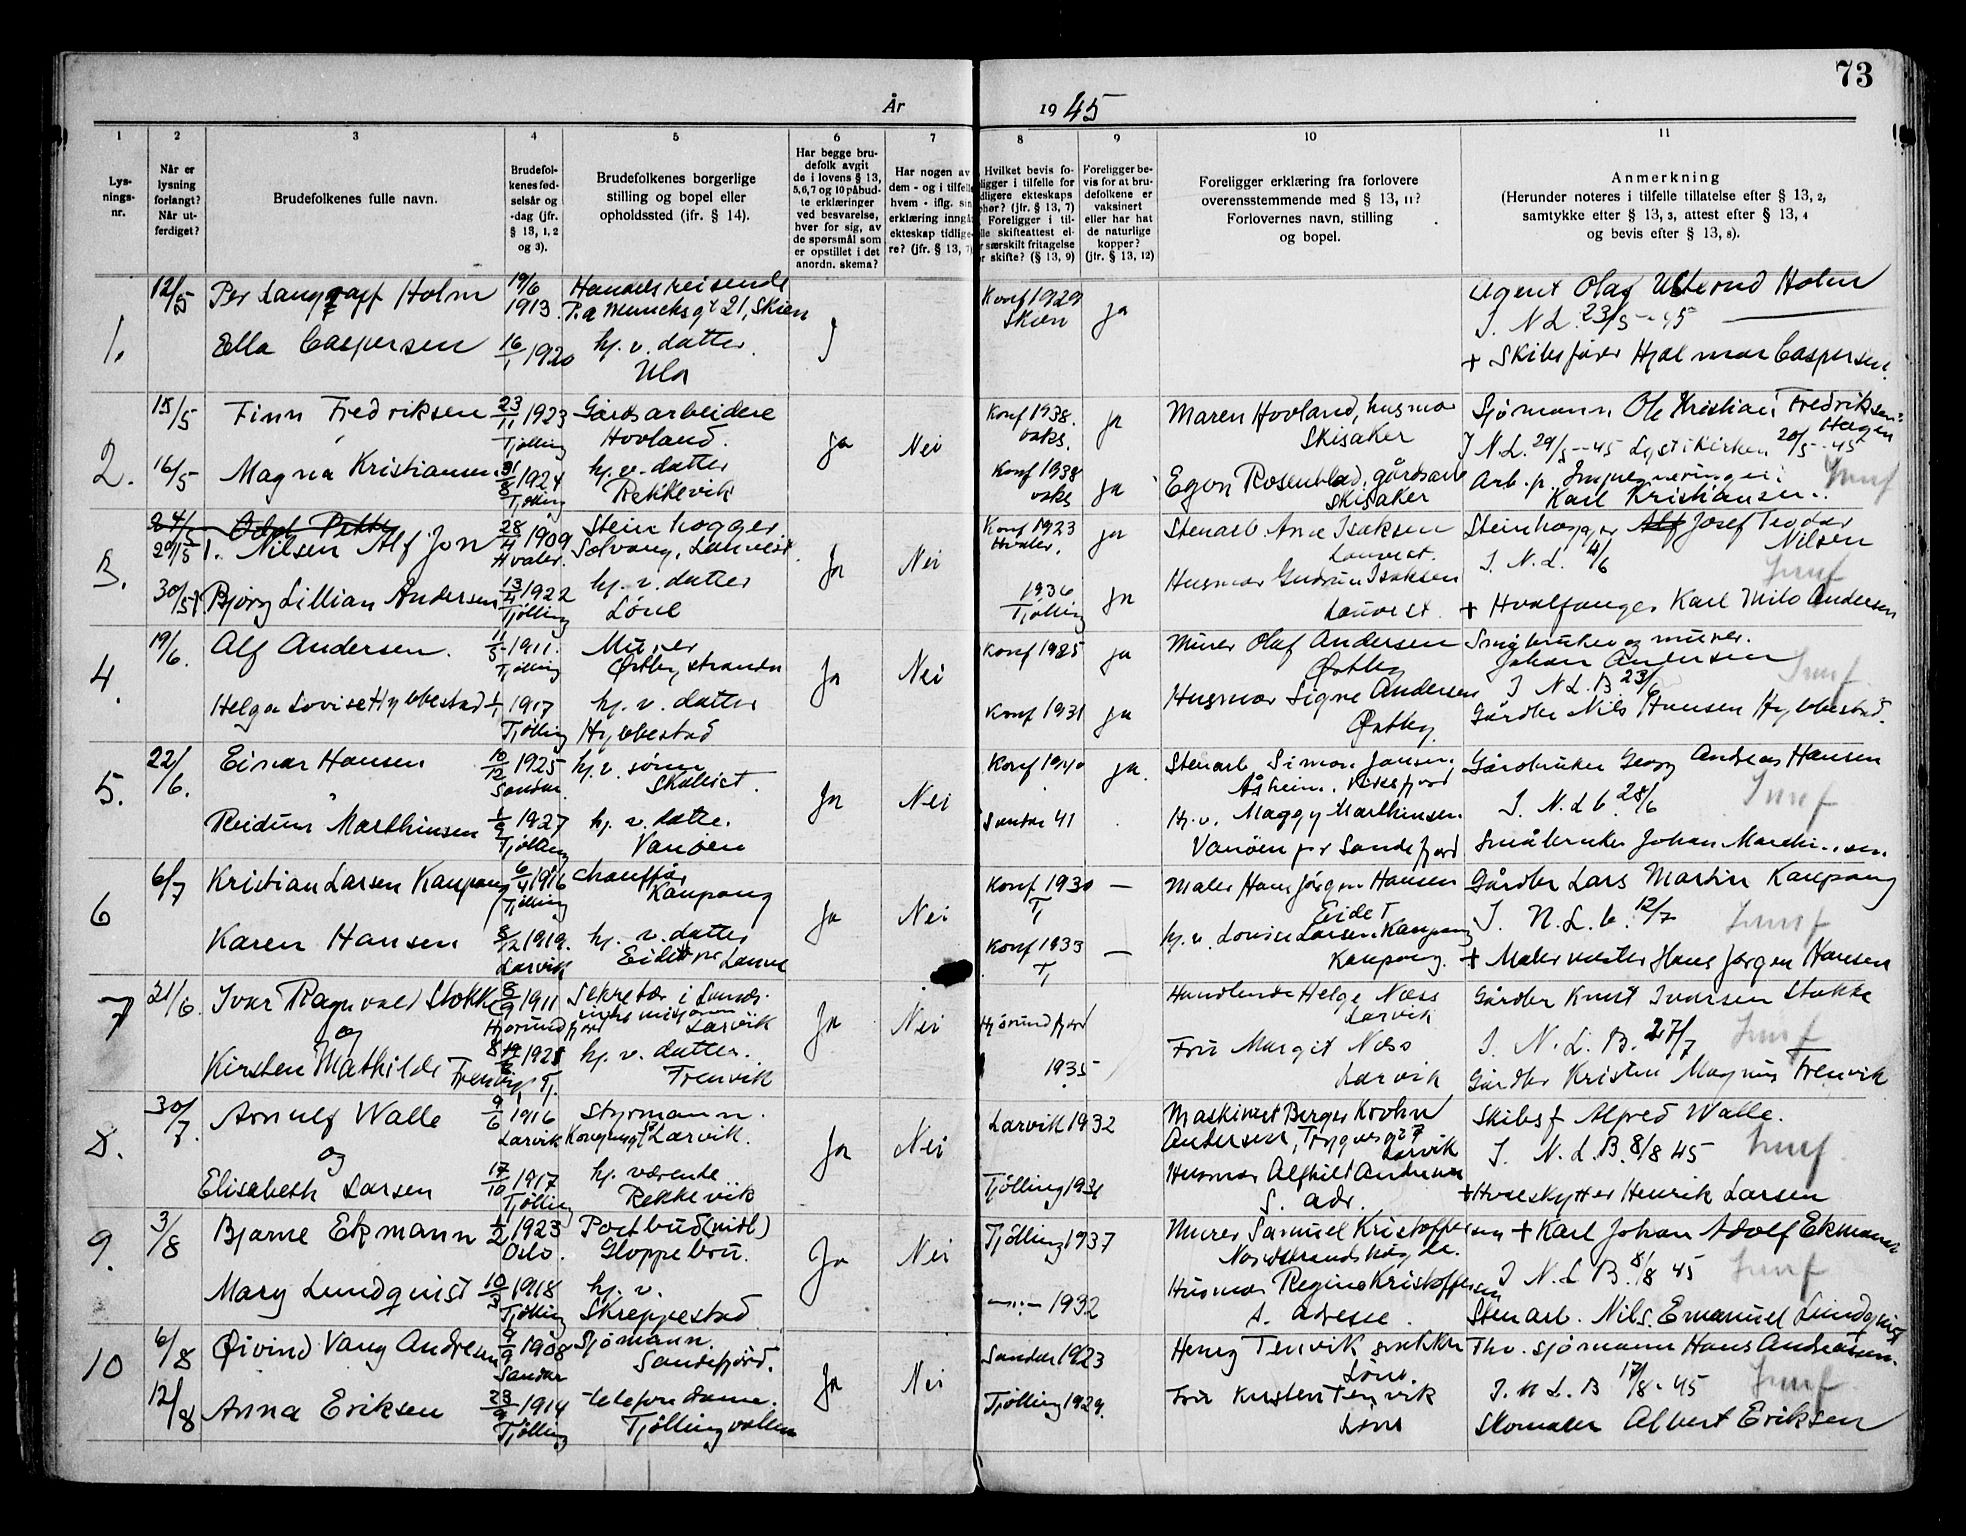 73
År 1945
1 2 3 4 5 6 7 8 9 10 11
Lys-
nings-
nr.
Når er
lysning
forlangt?
Når ut-
ferdiget?
Brudefolkenes fulle navn.
Brudefol-
kenes fød-
selsår og
-dag (jfr.
§ 13, 1, 2
og 3).
Brudefolkenes borgerlige
stilling og bopel eller
opholdssted (jfr. § 14).
Har begge bru-
defolk avgit
de i lovens § 13,
5, 6, 7 og 10 påbud-
te erklæringer
ved besvarelse,
hver for sig, av
de spørsmål som
er opstillet i det
anordn. skema?
Har nogen av
dem - og i tilfelle
hvem - iflg. sin
erklæring inngå
ekteskap tidlige-
re? (jfr. § 13, 7)
Hvilket bevis fo-
ligger i tilfelle for
dligere ekteskaps
phør? (jfr. § 13, 7)
Foreligger i til-
lle skifteattest el-
r særskilt fritagelse
r skifte? (§ 13, 9)
Foreligger be-
vis for at bru-
defolkene er
vaksinert
eller har hat
de naturlige
kopper?
(jfr. § 13, 12)
Foreligger erklæring fra forlovere
overensstemmende med § 13, 11?
Forlovernes navn, stilling
og bopel.
Anmerkning
(Herunder noteres i tilfelle tillatelse efter § 13, 2,
samtykke efter § 13, 3, attest efter § 13, 4
og bevis efter § 13, 8).
1.
12/5 Per Langgaff Holm 19/6 1913 Handelsreisende
P.a Muncksgt 21, Skien
Konf 1929 Skien ja
Agent Olaf Holm
I. N L. 23/5 - 45
Ella Caspersen 16/1 1920 hj. v. datter.
Ula
+ Skibsfører Hjalmar Caspersen.
2.
15/5 Finn Fredriksen 23/11 1923 Tjølling Gårdsarbeidere
Hovland.
ja Nei Konf 1938. vaks. ja
Maren Hovland, husmor
Skisaker
Sjømann Ole Kristian Fredriksen
Hagen
I N.L. 29/5 - 45 Lyst i kirken 20/5 - 45
16/5 Magna Kristiansen 31/8 1924 Tjølling hj. v. datter
Rekkevik
Konf 1938 vaks ja
Egon Rosenblad, gårdsarb
Skisaker
Arb. p. Impregneringen:
Karl Kristiansen.
3.
24/5 29/5 Nilsen Alf Jon 28/4 1909 Hvaler. Steinhogger
Solvang, Lauvest
Ja Nei Konf 1923 Hvaler. ja
Stenarb Isaksen
Lauvest.
Steinhogger Alf Josef Teodor
Nilsen
I. N. L. 4/6
30/5 Bjørg Lillian Andersen 13/4 1922 Tjølling hj. v. datter
Løne
1936 Tjølling ja
Husmor Gudrun Isaksen
Lauvest
+ Hvalfanger Karl Milo Andersen
4.
19/6. Alf Andersen. 1/5 1911. Tjølling Murer
Østby, stranda
Ja Nei Konf 1925 ja
Murer Olaf Andersen
Østby
Småbruker og murer.
Johan Andersen
I N L. B. 23/6
Helga Lovise Hybbestad 1/1 1917 Tjølling hj. v. datter
Hybbestad
Konf 1931 ja
Husmor Signe Andersen
Østby.
Gårdbr Nils Hansen Hybbestad.
5.
22/6. Einar Hansen 10/12 1925 Sandar. hj. v. sønn
Skallist.
Ja Nei Konf 1940 ja.
Stenarb Simon Jansen.
Åsheim.
Gårdbruker Georg Andreas Hansen
I. N. L b. 28/6
Reidun Marthinsen 1/9 1927 Tjølling hj. v. datte.
Vanøen
Sandar 41
Hj. v. Maggy Marthinsen.
Vanøen pr Sandefjord
Småbruker Johan Marthinsen.
6
6/7 Kristian Larsen Kaupang 6/4 1916 Tjølling chauffør
Kaupang
Ja Nei Konf 1930 Tj —
Maler Hans Jørgen Hansen
Eidet
Gårdbr Lars Martin Kaupang
I. N. L. b. 12/7
Karen Hansen 8/12 1919. Larvik hj. v. datter
Eidet pr Lauve
Konf 1933 Tj —
hj. v. Louise Larsen Kaupang
Kaupang.
+ Malermester Hans Jørgen Hansen
7
21/6. Ivar Ragnvald Stokke 8/9 1911 Hjørundfjord Sekretær i
Larvik
og
Ja Nei Hjørundfjord
Handlende Helge Næss
Larvik
Gårdbr Knut Ivarsen Stokke
I. N. L. B. 27/7
Kirsten Mathilde Frenvik hj. v. datter.
Frenvik
1935
Fru Margit Næss
Larvik
Gårdbr Kristen Magnus Frenvik
8.
30/7. Arnulf Walle 9/6 1916 Larvik Styrmann.
Kongensgt Larvik.
og
Ja Nei Larvik 1932
Maskinist Berger Krohn
Andersen, Tryggvesgt 7
Larvik
Skibsf Alfred Walle.
I. N. L. B. 8/8 45
Elisabeth Larsen 17/10 1917 Tjølling hj. værende
Rekkevik
Tjølling 1931
Husmor Alfhild Andersen
S. adr.
+ Hvalskytter Henrik Larsen
9.
3/8 Bjarne Ekmann 1/2 1923 Oslo. Postbud (midl)
Gloppebru.
Ja Nei Tjølling 1937
Murer Samuel Kristoffersen
+ Karl Johan Adolf Ekmann
I N. L B. 8/8 45
Mary Lundquist 10/3 1918 Tjølling hj. v.
Skreppestad
—"— 1932
Husmor Regine Kristoffersen
s. adresse.
Stenarb. Nils Emanuel Lundquist
10
6/8 Øivind Vang Andresen 9/9 1908 Sandar Sjømann.
Sandefjord.
Ja Nei Sandar 1923
Henry Tenvik
Løne.
Thv. sjømann Hans Andreassen.
I. N L. B 17/8 - 45
12/8 Anna Eriksen 23/9 1914 Tjølling telefondame.
Tjøllingvollen
Tjølling 1929.
Fru Kirsten Tenvik
Løne
Skomaker Albert Eriksen